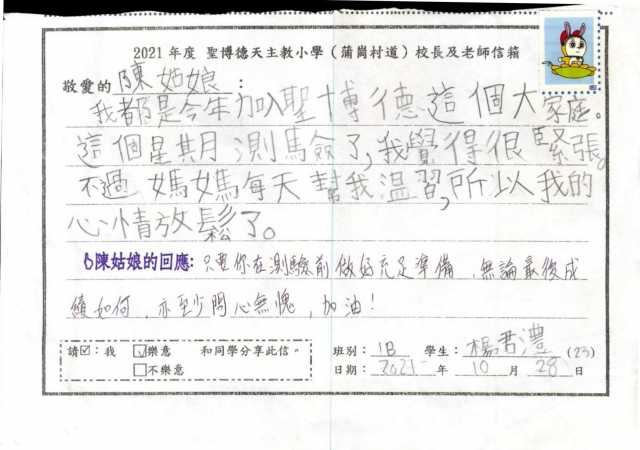 2021 年度 聖博德天主教小學（蒲崗村道）校長及老師信箱
敬愛的 陳姑娘：
我都是今年加入聖博德這個大家庭。
這個星期測驗了，我覺得很緊張。
不過媽媽每天幫我溫習，所以我的
心情放鬆了。
陳姑娘的回應: 只要你在測驗前做好充足準備，無論最後成
績如何，亦至少問心無愧，加油！
請☑：我 ☑樂意 和同學分享此信。 班別：1B 學生：楊君灃 (23)
□不樂意 日期：2021 年 10 月 28 日